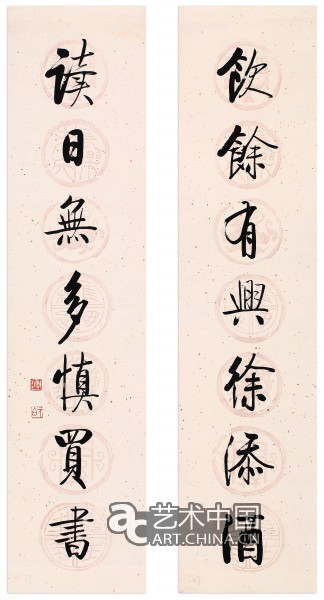 飲餘有興徐添酒
读日無多慎買書
ac 艺术中国
ART.CHINA.CN